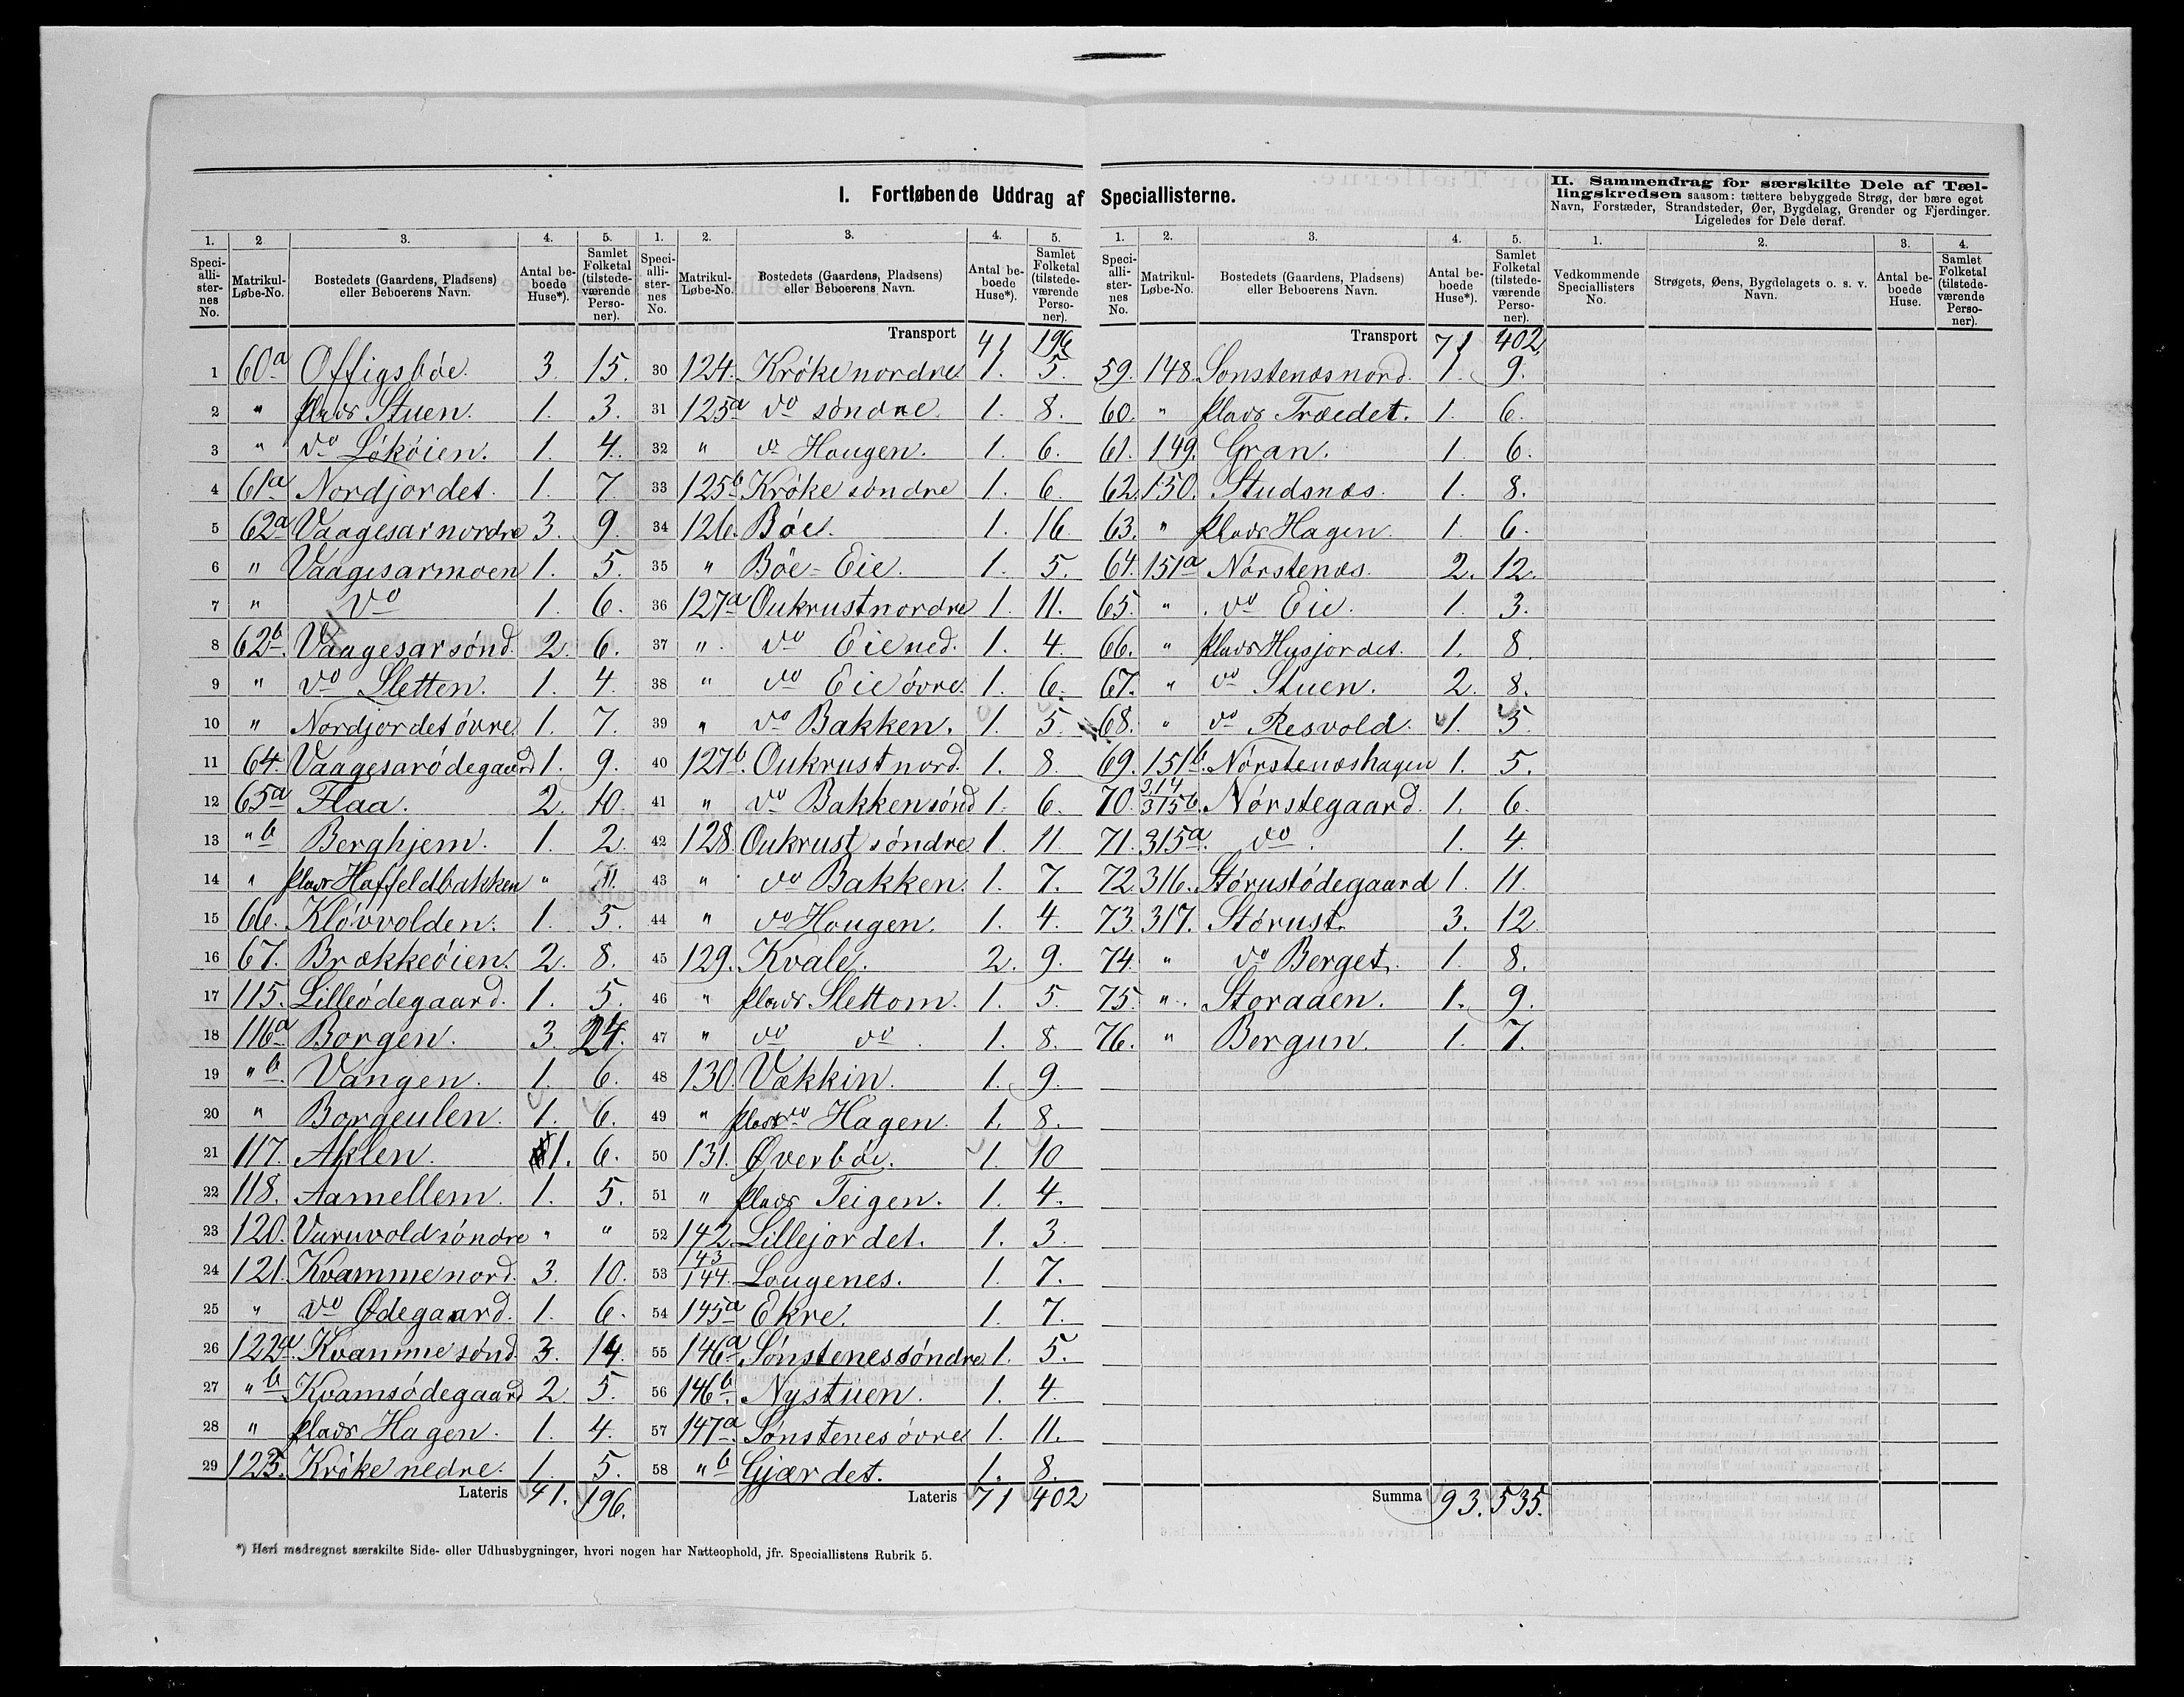 I. Fortløbende Uddrag af Speciallisterne.
II. Sammendrag for særskilte Dele af Tællingskredsen saasom: tættere bebyggede Strøg, der bære eget
Navn, Forstæder, Strandsteder, Øer, Bygdelag, Grender og Fjerdinger.
Ligeledes for Dele deraf.
1. 2. 3. 4. 5.
Speciallisternes No. Matrikul-Løbe-No. Bostedets (Gaardens, Pladsens) eller Beboerens Navn. Antal beboede Huse*). Samlet Folketal (tilstedeværende Personer).
1 60a Offigsbøe. 3. 15.
2 " plads Stuen. 1. 3.
3 " do Løkøien. 1. 4.
4 61a Nordjordet. 1. 7.
5 62a Vaagesar nordre 3. 9.
6 " Vaagesarmoen 1. 5.
7 " do 1. 6.
8 62b. Vaagesar sønd. 2. 6.
9 " do Sletten. 1. 4.
10 " Nordjordet øvre. 1. 7.
11 64. Vaagesarødegaard 1. 9.
12 65a Flaa. 2. 10.
13 " b Berghjem. 1. 2.
14 " plads Haffeldbakken "
15 66. Kløvvolden. 1. 5.
16 67. Brækkeøien. 2. 8.
17 115. Lilleødegaard. 1. 5.
18 116a Borgen. 3. 24.
19 " b. Vangen. 1. 6.
20 " Borgeulen. 1. 6.
21 117. Aklen. 1. 6.
22 118. Aamellem. 1. 5.
23 120. Vuruvold søndre " "
24 121. Kvamme nord. 3. 10.
25 " do Ødegaard. 1. 6.
26 122a. Kvamme sønd. 3. 14.
27 " b Kvamsødegaard 2. 5.
28 " plads Hagen. 1. 4.
29 123. Krøke nedre. 1. 5.
Lateris 41. 196.
1. 2. 3. 4. 5.
Speciallisternes No. Matrikul-Løbe-No. Bostedets (Gaardens, Pladsens) eller Beboerens Navn. Antal beboede Huse*). Samlet Folketal (tilstedeværende Personer).
Transport 41 196
30 124. Krøke nordre 1. 5.
31 125a do søndre. 1. 8.
32 " do Hougen. 1. 6.
33 125b Krøke søndre 1. 6.
34 126. Bøe. 1. 16.
35 " Bøe-Eie. 1. 5.
36 127a Oukrust nordre 1. 11.
37 " do Eie ned. 1. 4.
38 " do Eie øvre. 1. 6.
39 " do Bakken. 1. 5.
40 127b. Oukrust nord. 1. 8.
41 " do Bakken sønd 1. 6.
42 128. Oukrust søndre 1. 11.
43 " do Bakken. 1. 7.
44 " do Hougen. 1. 4.
45 129. Kvale. 2. 9.
46 " plads Slettom. 1. 5.
47 " do do. 1. 8.
48 130. Vækkin. 1. 9.
49 " plads do Hagen. 1. 8.
50 131. Øverbøe. 1. 10
51 " plads Teigen. 1. 4.
52 142. Lillejordet. 1. 3.
53 143/144. Lougenes. 1. 7.
54 145a Ekre. 1. 7.
55 146a. Sønstenes søndre 1. 5.
56 146b. Nystuen. 1. 4.
57 147a. Sønstenes øvre 1. 11.
58 " b Gjærdet. 1. 8.
Lateris 71 402
1. 2. 3. 4. 5.
Speciallisternes No. Matrikul-Løbe-No. Bostedets (Gaardens, Pladsens) eller Beboerens Navn. Antal beboede Huse*). Samlet Folketal (tilstedeværende Personer).
Transport 71 402.
59. 148. Sønstenæs nord. 1. 9.
60. " plads Træedet. 1. 6.
61. 149. Gran. 1. 6.
62. 150. Studsnæs. 1. 8.
63. " plads Hagen. 1. 6.
64. 151a Nørstenæs. 2. 12.
65. " do Eie. 1. 3.
66. " plads Husjordet. 1. 8.
67. " do Stuen. 2. 8.
68. " do Resvold. 1. 5.
69. 151b. Nørstenæshagen 1. 5.
70. 314/315b. Nørstegaard. 1. 6.
71. 315a. do. 1. 4.
72. 316. Størustødegaard 1. 11.
73. 317. Størust. 3. 12.
74. " do Berget. 1. 8.
75. " Storaaen. 1. 9.
76. " Bergun. 1. 7.
Summa 93. 535.
1. 2. 3. 4.
Vedkommende Speciallisters No. Strøgets, Øens, Bygdelagets o. s. v. Navn. Antal beboede Huse. Samlet Folketal (tilstedeværende Personer).
*) Heri medregnet særskilte Side- eller Udhusbygninger, hvori nogen har Natteophold, jfr. Speciallistens Rubrik 5.